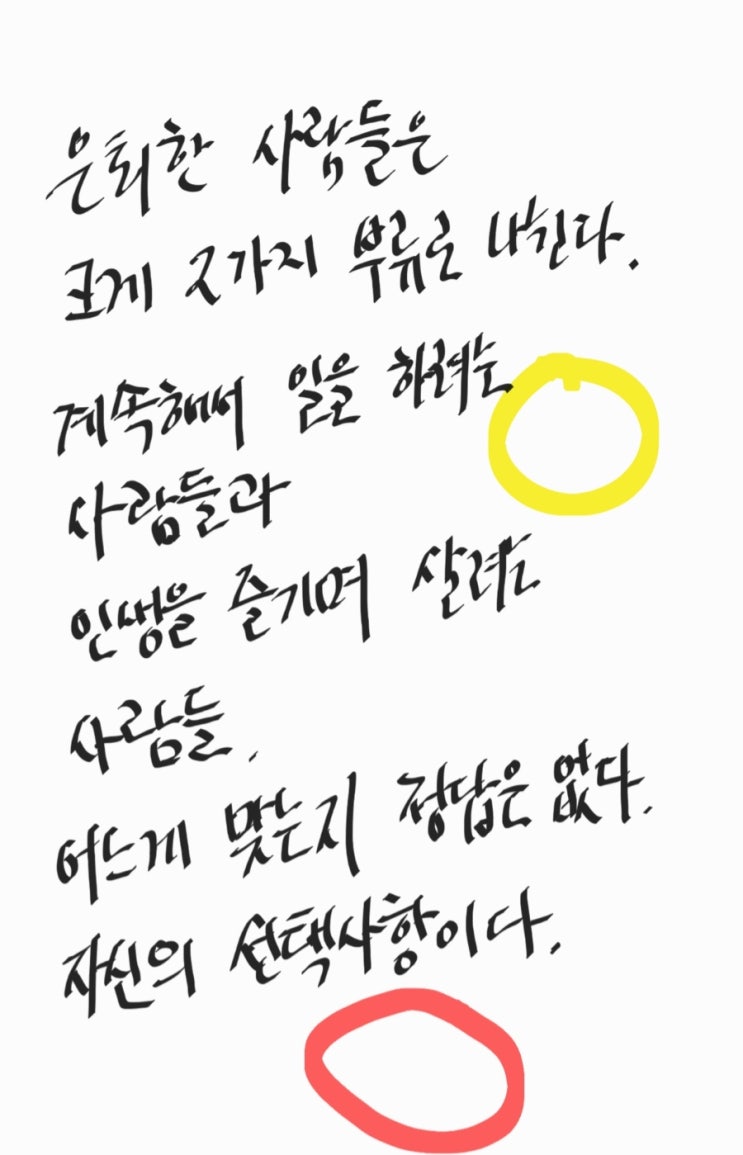 은퇴한 사람들은
크게 2가지 부류로 나뉜다.
계속해서 일을 하려는
사람들과
인생을 즐기며 살려는
사람들.
어느게 맞는지 정답은 없다.
자신의 선택사항이다.